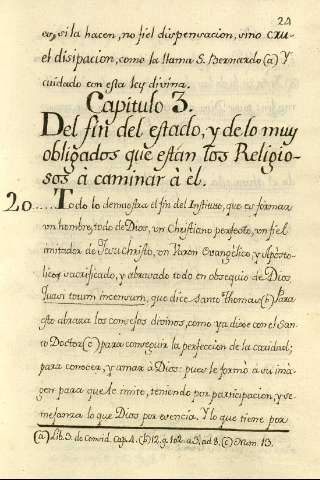 24
es, si la hacen, no fiel dispensacion, sino cru-
el disipacion, como la llama S. Bernardo (a) Y
cuidado con esta ley divina.
Capitulo 3.
Del fin del estado, y de lo muy
obligados que están los Religio-
sos à caminar à èl.
20..... Todo lo demuestra el fin del Instituto, que es formar
un hombre, todo de Dios, un Christiano perfecto, un fiel
imitador de Jesu Christo, un Varon Evangelico, y Apósto-
lico, sacrificado, y abrasado todo en obsequio de Dios
Quasi totum incensum, que dice santo Thomas (b) Para
esto abraza los consejos divinos, como ya dixe con el San-
to Doctor (c) para conseguir la perfeccion de la caridad;
para conocer, y amar à Dios: pues le formò à su imà-
gen para que le imite, teniendo por participacion, y se-
mejanza lo que Dios por esencia. Y lo que tiene por
(a) Lib. 3. de Consid. Cap. 4. (b) 2. 2. q. 102. a. 3. ad 8. (c) Num. 13.